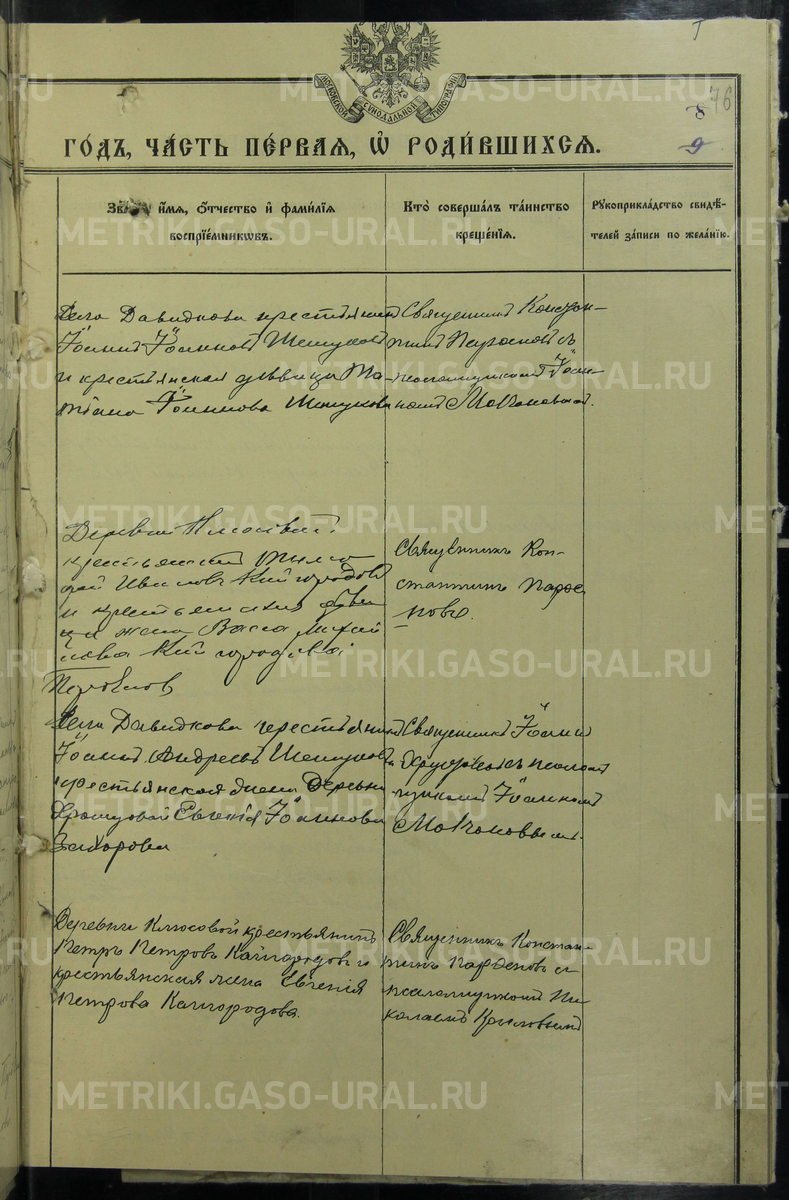 76
8
9
МОСКОВСКОЙ СѴНОДАЛЬНОЙ ТИПОГРАФІИ
ГО́ДЪ, ЧА́СТЬ ПЕ́РВАЯ, Ѡ҆ РОДИ́ВШИХСѦ.
и҆́мѧ, ѻ҆́тчество и҆ фами́лїѧ
воспрїе́мникѡвъ.
Кто̀ соверша́лъ та́инство
креще́нїѧ.
Рꙋкоприкла́дство свидѣ́-
телей за́писи по жела́нїю.
Села Давидкова крестьянинъ
Іоаннъ Іоанновъ Шешуковъ
и крестьянская дѣвица Та-
тіана Іоаннова Шешукова
Священникъ Констан-
тинъ Парѳеновъ съ
псаломщикомъ Іоан-
номъ Молчановымъ.
Деревни
крестьянинъ Тимо
фей Ивановъ Кайгородовъ
и крестьянская
жена Васса Михай
лова Кайгородова
Священникъ Кон-
стантинъ Парѳе
новъ.
Села Давидкова крестьянинъ
Іоаннъ Андреевъ Шешуковъ и
крестьянская жена Деревни
Евгенія Іоаннова
Захарова
Священникъ Іоаннъ
съ псалом
щикомъ Іоанномъ
Молчановымъ.
Деревни Клюсовой крестьянинъ
Петръ Петровъ Кайгородовъ и
крестьянская жена Евгенія
Петрова Кайгородова.
Священникъ Констан-
тинъ Парѳеновъ и
псаломщикомъ Ни-
колаемъ Крыловымъ
METRIKI.GASO-URAL.RU